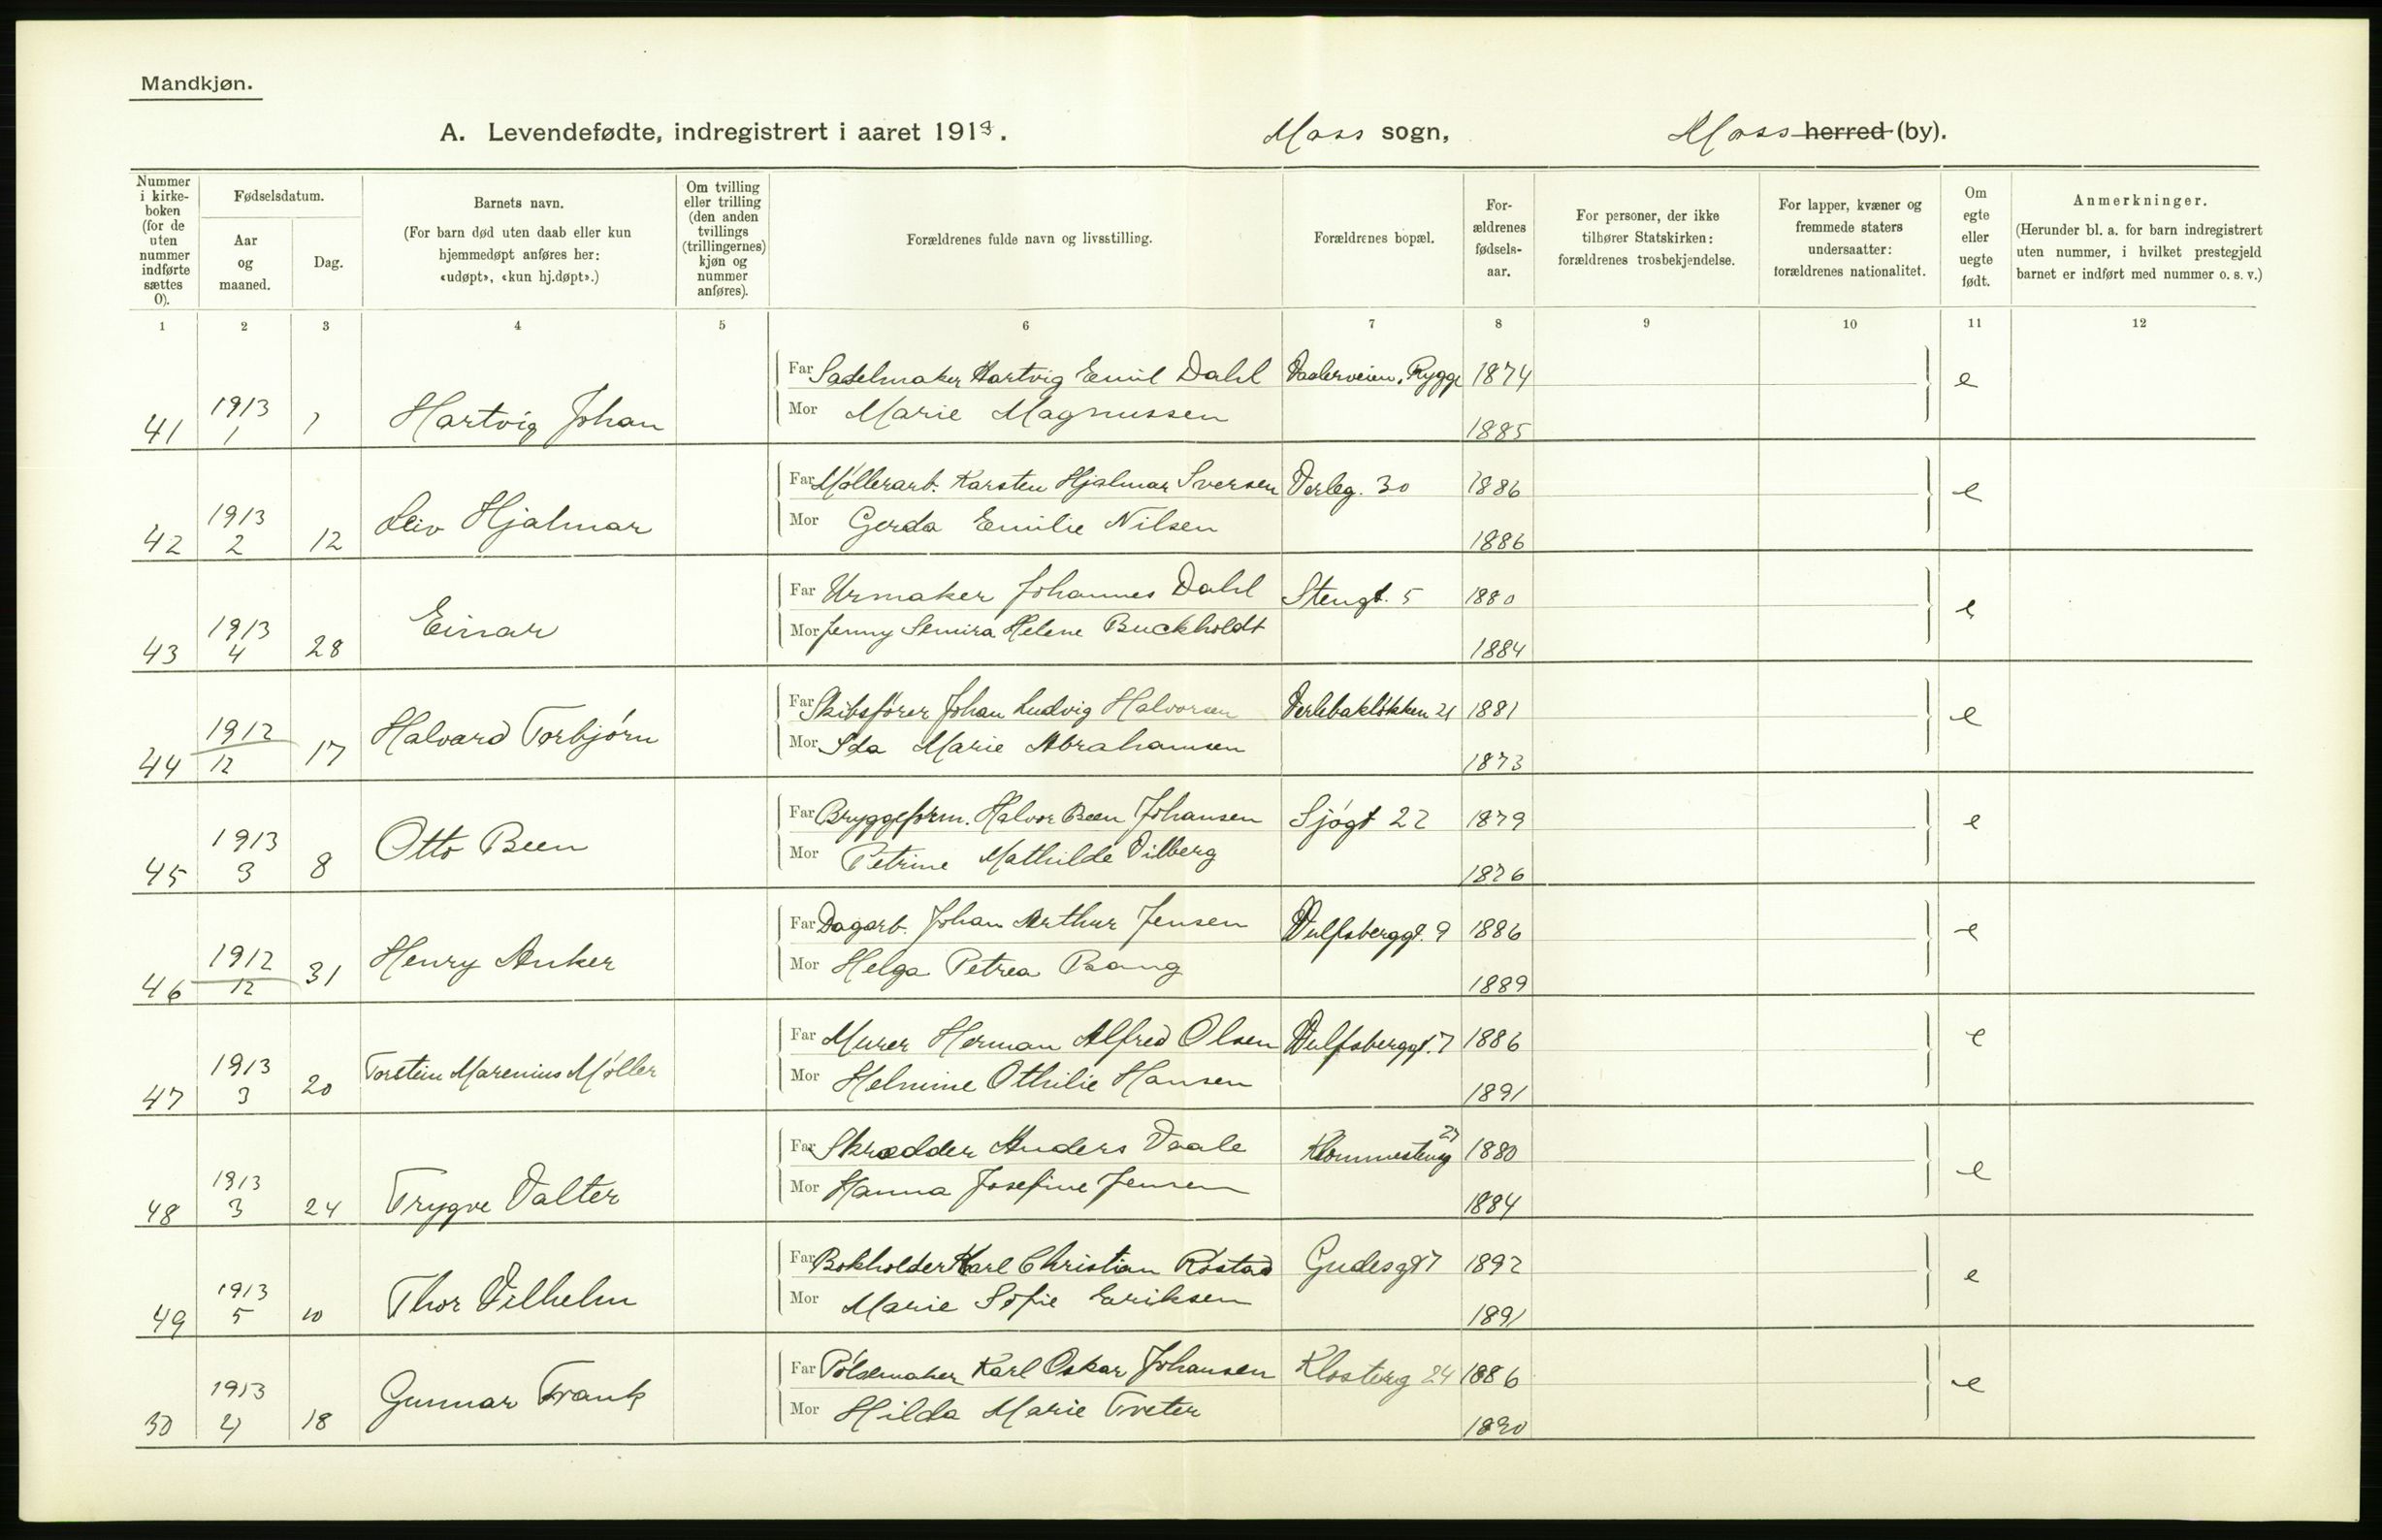 Mandkjøn.
A. Levendefødte, indregistrert i aaret 1913. Moss sogn, Moss herred (by).
Nummer i kirke-boken (for de uten nummer indførte sættes 0).
Fødselsdatum.
Aar og maaned.
Dag.
Barnets navn.
(For barn død uten daab eller kun hjemmedøpt anføres her: «udøpt», «kun hj.døpt».)
Om tvilling eller trilling (den anden tvillings (trillingernes) kjøn og nummer anføres).
Forældrenes fulde navn og livsstilling.
Forældrenes bopæl.
For-ældrenes fødsels-aar.
For personer, der ikke tilhører Statskirken: forældrenes trosbekjendelse.
For lapper, kvæner og fremmede staters undersaatter: forældrenes nationalitet.
Om egte eller uegte født.
Anmerkninger.
(Herunder bl. a. for barn indregistrert uten nummer, i hvilket prestegjeld barnet er indført med nummer o. s. v.)
1 2 3 4 5 6 7 8 9 10 11 12
Far Sadelmaker Hartvig Emil Dahl Vaalerveien, Rygge 1874 e
41 1913 1 1 Hartvig Johan Mor Marie Magnussen 1885
Far Møllerarb. Karsten Hjalmar Iversen Verleg. 30 1886 e
42 1913 2 12 Leiv Hjalmar Mor Gerda Emilie Nilsen 1886
Far Urmaker Johannes Dahl Stengt. 5 1880 e
43 1913 4 28 Einar Mor Jenny Semira Helene Buckholdt 1884
Far Skibsfører Johan Ludvig Halvorsen Verlebakløkken 21 1881 e
44 1912 12 17 Halvard Torbjørn Mor Ida Marie Abrahamsen 1873
Far Bryggeform. Halvor Been Johansen Sjøgt 22 1879 e
45 1913 3 8 Otto Been Mor Petrine Mathilde Vilberg 1876
Far Dagarb. Johan Arthur Jensen Wulfsberggt. 9 1886 e
46 1912 12 31 Henry Anker Mor Helga Petrea Bang 1889
Far Murer Herman Alfred Olsen Wulfsberggt. 7 1886 e
47 1913 3 20 Torstein Marenius Møller Mor Helmine Othilie Hansen 1891
Far Skrædder Anders Vaale Klommesteng 27 1880 e
48 1913 3 24 Trygve Valter Mor Hanna Josefine Jensen 1884
Far Bokholder Karl Christian Røstad Gudesgt 7 1892 e
49 1913 5 10 Thor Vilhelm Mor Marie Sofie Eriksen 1891
Far Pølsemaker Karl Oskar Johansen Klosterg 24 1886 e
50 1913 4 18 Gunnar Frank Mor Hilda Marie Tveter 1890